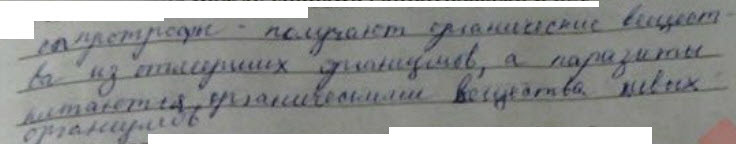 сапротрофы - получают органические вещест-
ва из отмерших организмов, а паразиты
питаются органическими вещества живых
организмов